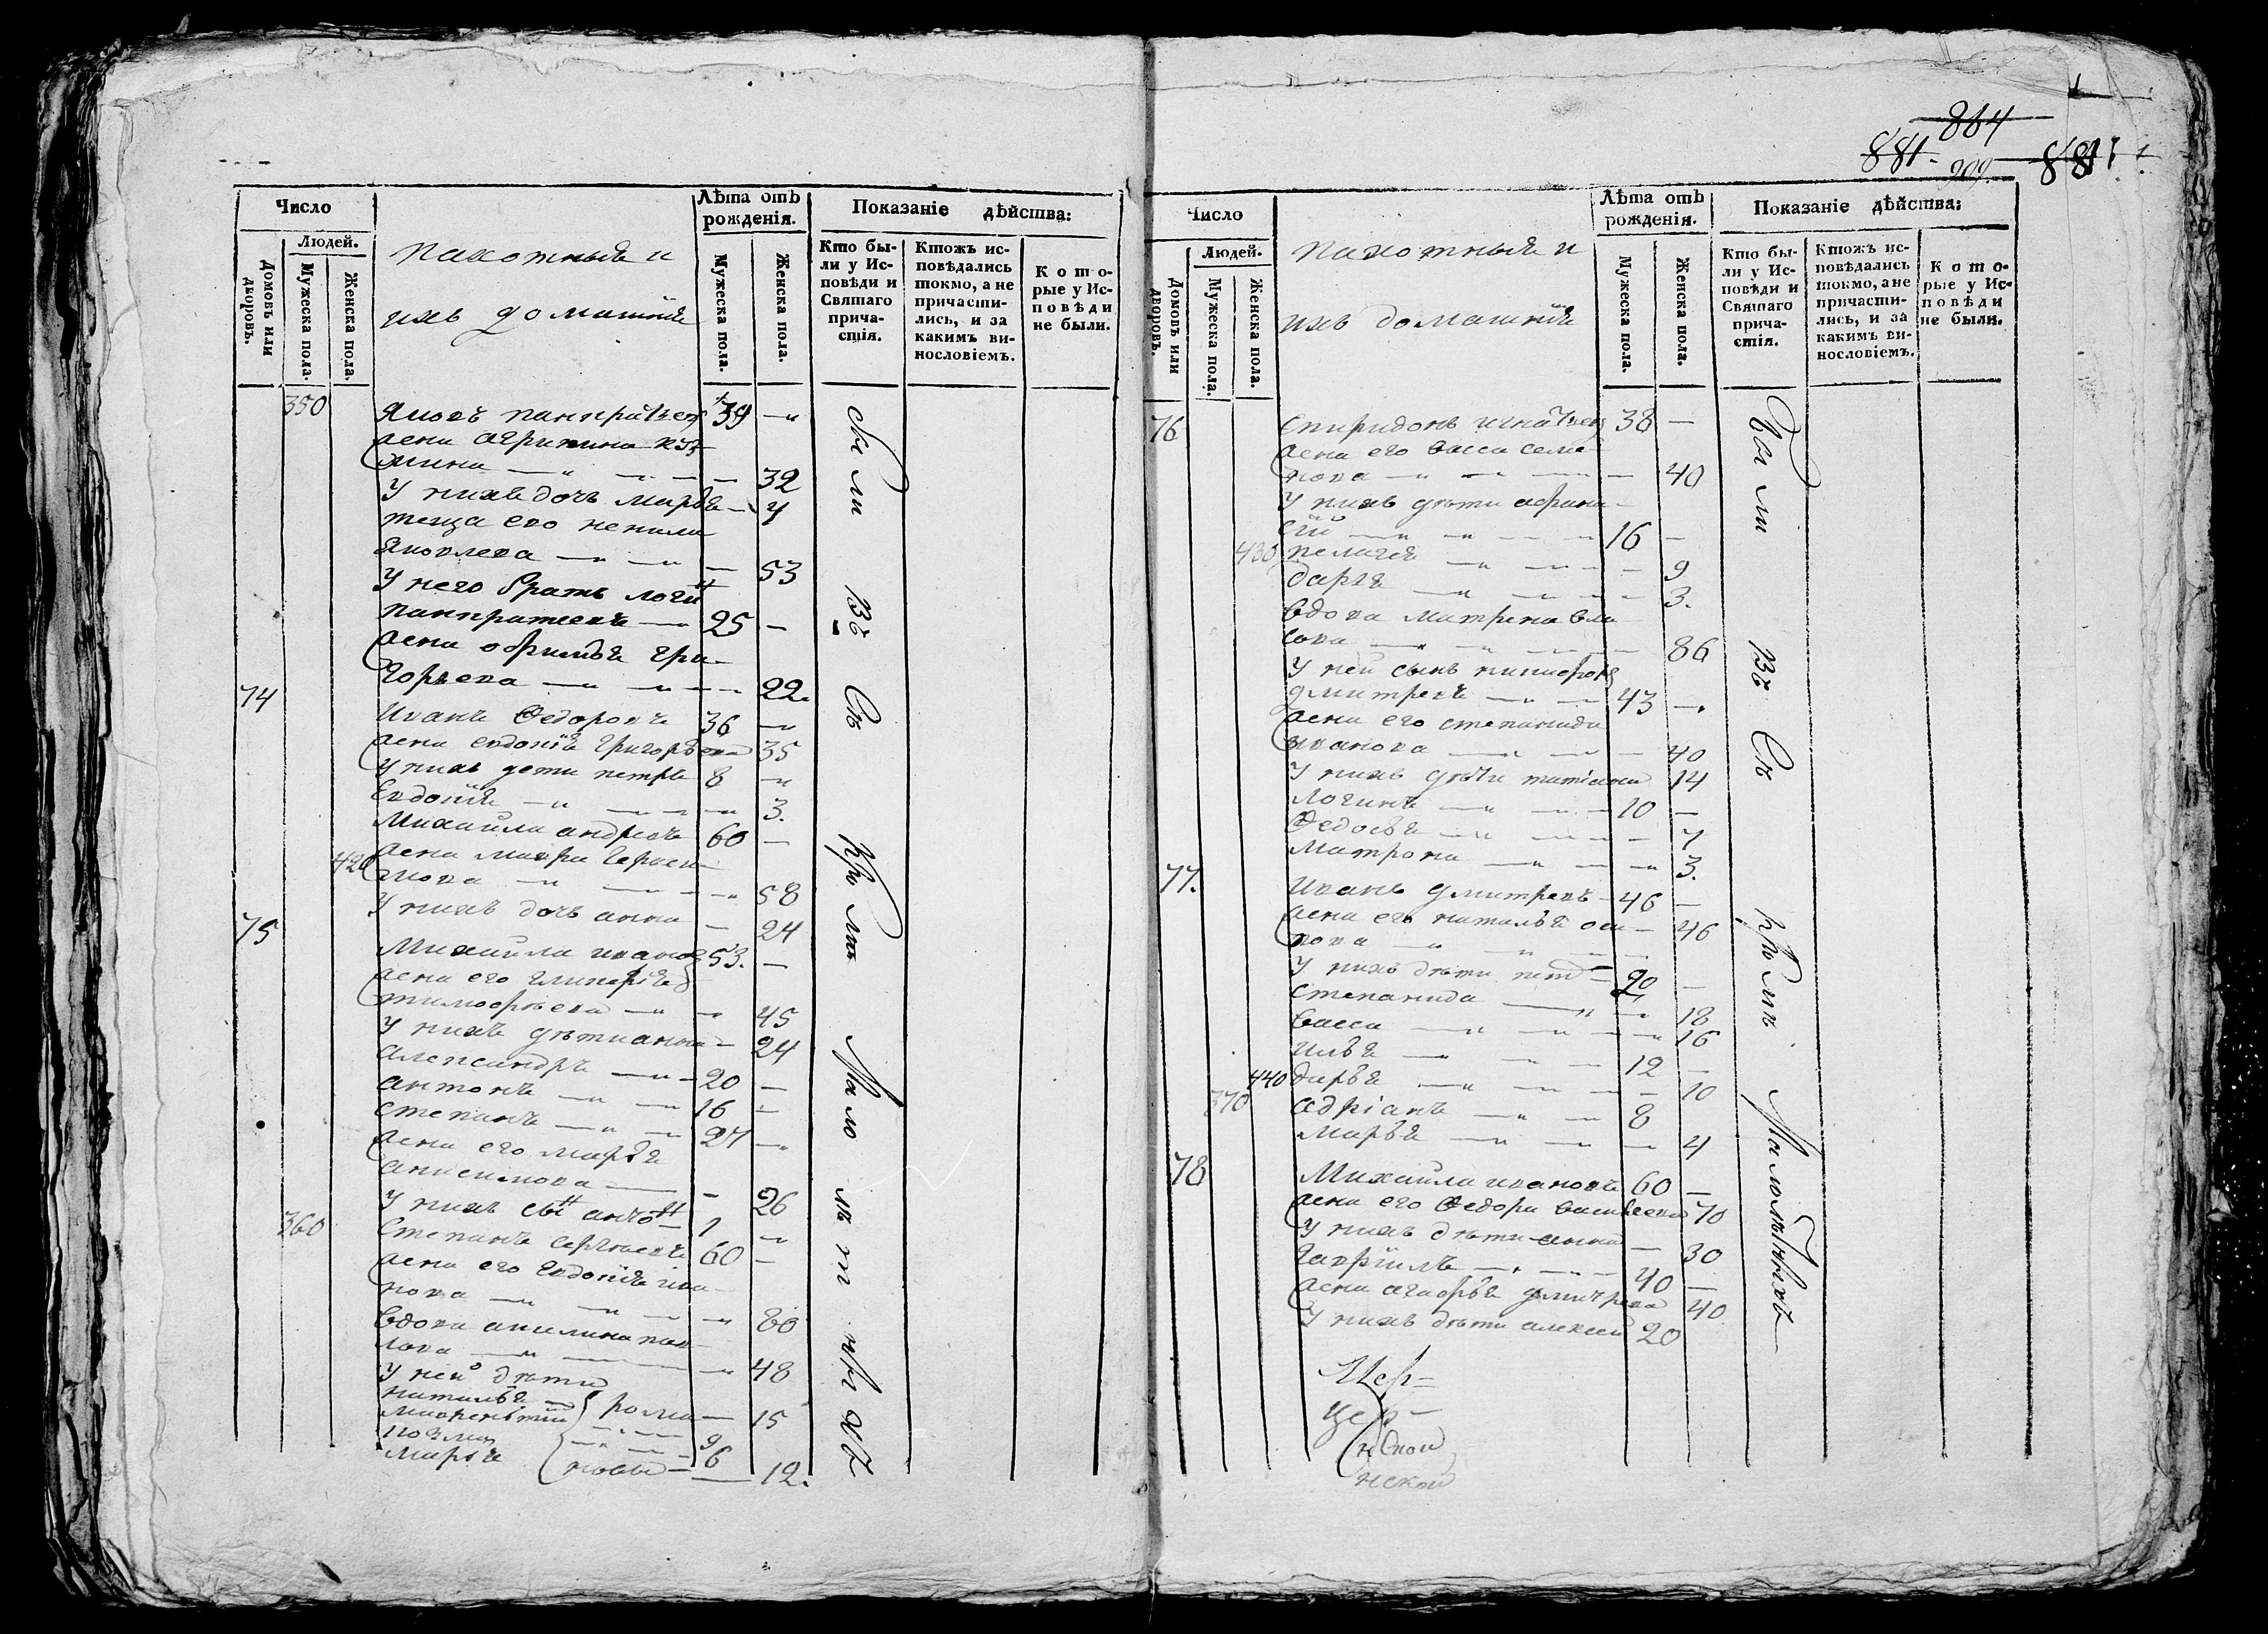 864
881 909 881
Число
Людей.
Домовъ или дворовъ.
Мужеска пола.
Женска пола.
пахотныя и
ихъ домашнія
Лѣта отъ рожденія.
Мужеска пола.
Женска пола.
Показаніе дѣйства:
Кто бы-
ли у Ис-
повѣди и
Святаго
прича-
стія.
Ктожъ ис-
повѣдались
токмо, а не
причасти-
лись, и за
какимъ ви-
нословіемъ.
Кото-
рые у Ис-
повѣди
не были.
350 Яковъ панкратьевъ 39 —
жена агрипина кз-
мина — 32
У нихъ дочь марѳя — 4
теща его ненила
Яковлева — 53
У него братъ логи н
панкратевъ — 25 —
жена офимья гри-
горьева — 22.
74
Иванъ Федоровъ 36 —
жена евдокия григорьева 35
У нихъ дети петръ 8 —
Евдокия — 3.
Михайла андревъ 60 —
420 жена мавра гераси-
мова — 58
У нихъ дочь анна — 24
75
Михайла иванов 53. —
жена его гликерья
тимофѣева — 45
У нихъ дѣти анна — 24
александръ — 20 —
антонъ — 16 —
степанъ — 27 —
жена его марья
анисимова — 26
360 У нихъ сы н анто н 1 —
Степанъ сергѣевъ 60 —
жена его Евдокия ива-
нова — 80
вдова акилина пав-
лова — 48
У ней дѣти
наталья — рома — 15
лаврентии — 9
козма — 6
марья новы — 12.
были
въ
Св
кро ми
мало
лѣт
ныхъ
Число
Людей.
Домовъ или дворовъ.
Мужеска пола
Женска пола.
пахотныя и
ихъ домашнія
Лѣта отъ рожденія.
Мужеска пола.
Женска пола.
Показаніе дѣйства;
Кто бы-
ли у Ис-
повѣди и
Святаго
прича-
стія.
Ктожъ ис-
повѣдались
токмо, а не
причасти-
лись, и за
какимъ ви-
нословіемъ.
Кото-
рые у Ис-
повѣди
не были.
76 Спиридонъ игнатьевъ 38 —
жена его васса семе-
нова — 40
У нихъ дѣти афана-
сій — 16 —
430 пелагея — 9
дарья — 3.
вдова матрена вла
сова — 86
У ней сынъ никифоръ
дмитревъ — 43 —
жена его степанида
иванова — 40
У нихъ дѣти татіана 14
логинъ — 10 —
Федосья — 7
Матрона — 3.
77.
Иванъ дмитревъ — 46 —
жена его наталья оси — 46
пова —
У нихъ дѣти петр — 20 —
степанида — 18
васса — 16
илья — 12 —
440 дарья — 10
370 адріанъ — 8
марья — 4
78
Михайла ивановъ 60 —
жена его Федора васильева 70
У нихъ дѣти анна — 30
гаврiилъ — 40 —
жена агафья дмитрева 40
У нихъ дѣти алексеи 20
Были
въ
Св
кромъ
Малолѣтныхъ